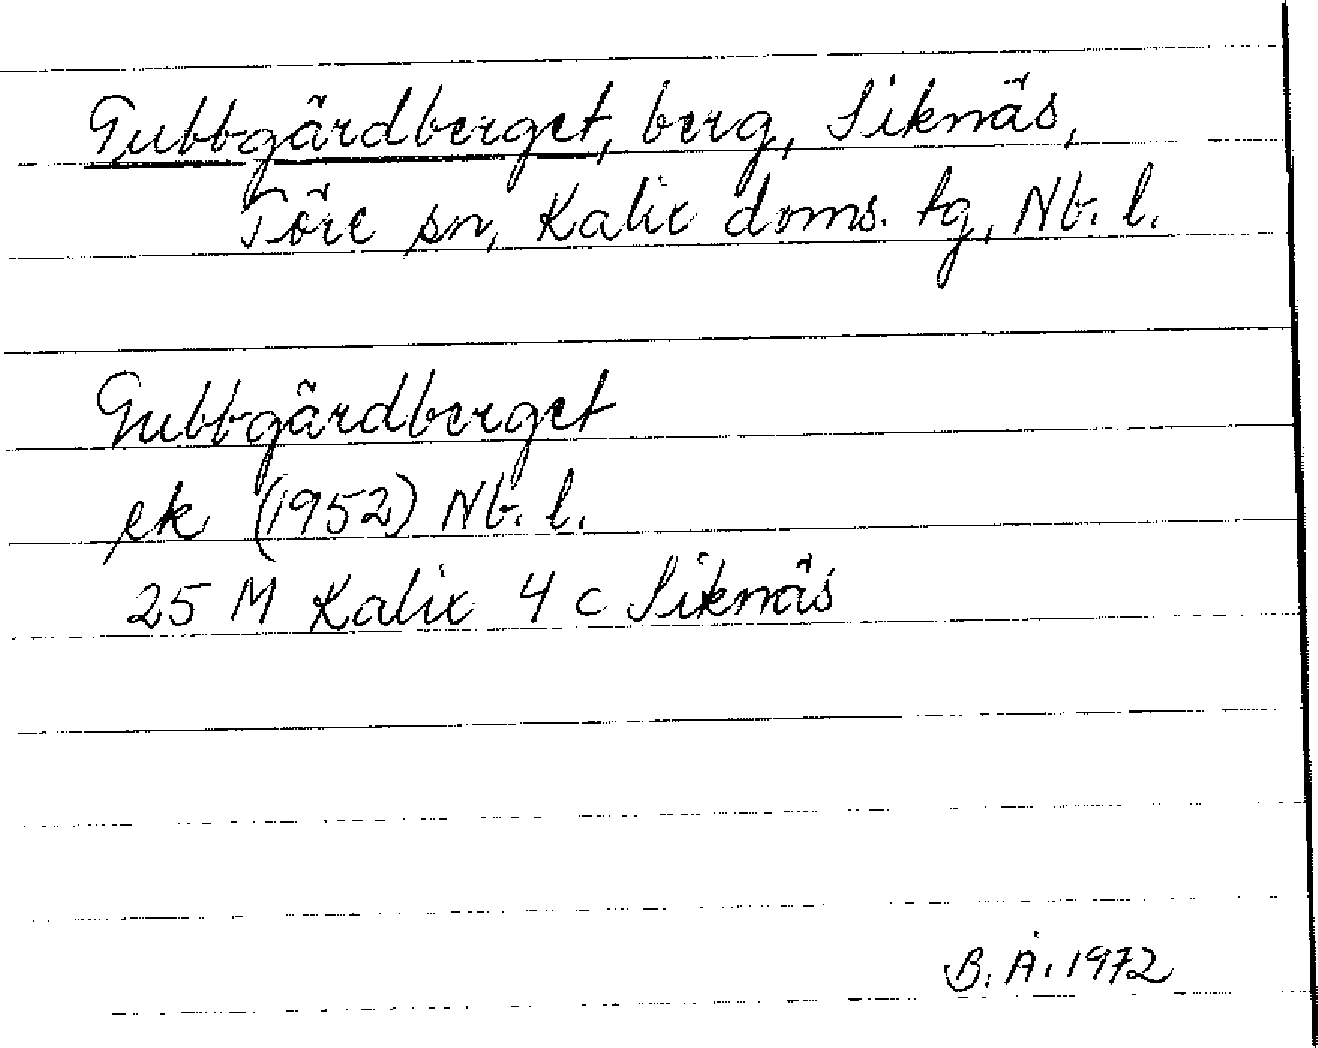 Gubbgärdberget, berg, Siknäs,
Töre sn, Kalix doms. tg, Nb. l.
Gubbgärdberget
ek (1952) Nb. l.
25 M Kalix 4 c Siknäs
B. Å. 1972